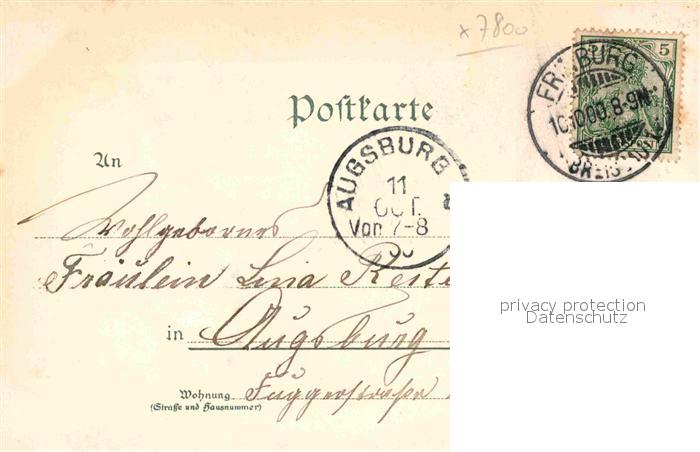 x 7800
5
FREIBURG
10.10.00.8-9N.
BREISGAU
Postkarte
An
AUGSBURG
11
OCT.
Von 7-8
00
Wohlgebornes
Fräulein Lina
in Augsburg
Wohnung Fuggerstraße
(Straße und Hausnummer)
privacy protection
Datenschutz